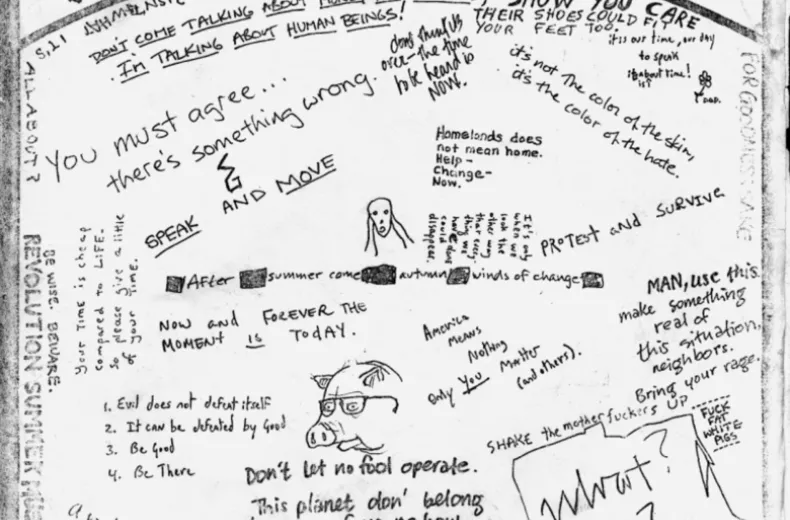 DON'T COME TALKING ABOUT
I'm TALKING ABOUT HUMAN BEINGS!
SHOW YOU CARE
THEIR SHOES COULD FIT
YOUR FEET TOO.
it is our time, our day
to speak
it's about time!
don't think it's
over- the time
to be heard is
NOW.
it's not the color of the skin,
it's the color of the hate.
ALL ABOUT?
FOR GOODNESS SAKE
You must agree...
there's something wrong.
Homelands does
not mean home.
Help-
Change-
Now.
SPEAK AND MOVE
It's only
when we
look the
other way
that can
this we
have done
could
disappear.
PROTEST and SURVIVE
Your Time is cheap
compared to LIFE.
So please give a little
of your TIME.
BE WISE. BEWARE.
REVOLUTION SUMMER
After summer come autumn winds of change
NOW and FOREVER THE
MOMENT IS TODAY.
America
Means
Nothing
Only You Matter
(and others).
MAN, use this.
make something
real of
this situation,
neighbors.
Bring your rage.
1. Evil does not defeat itself
2. It can be defeated by Good
3. Be Good
4. Be There
SHAKE the motherfuckers UP
FUCK
FAT
WHITE
PIGS
Don't let no fool operate.
This planet don' belong
What?
?